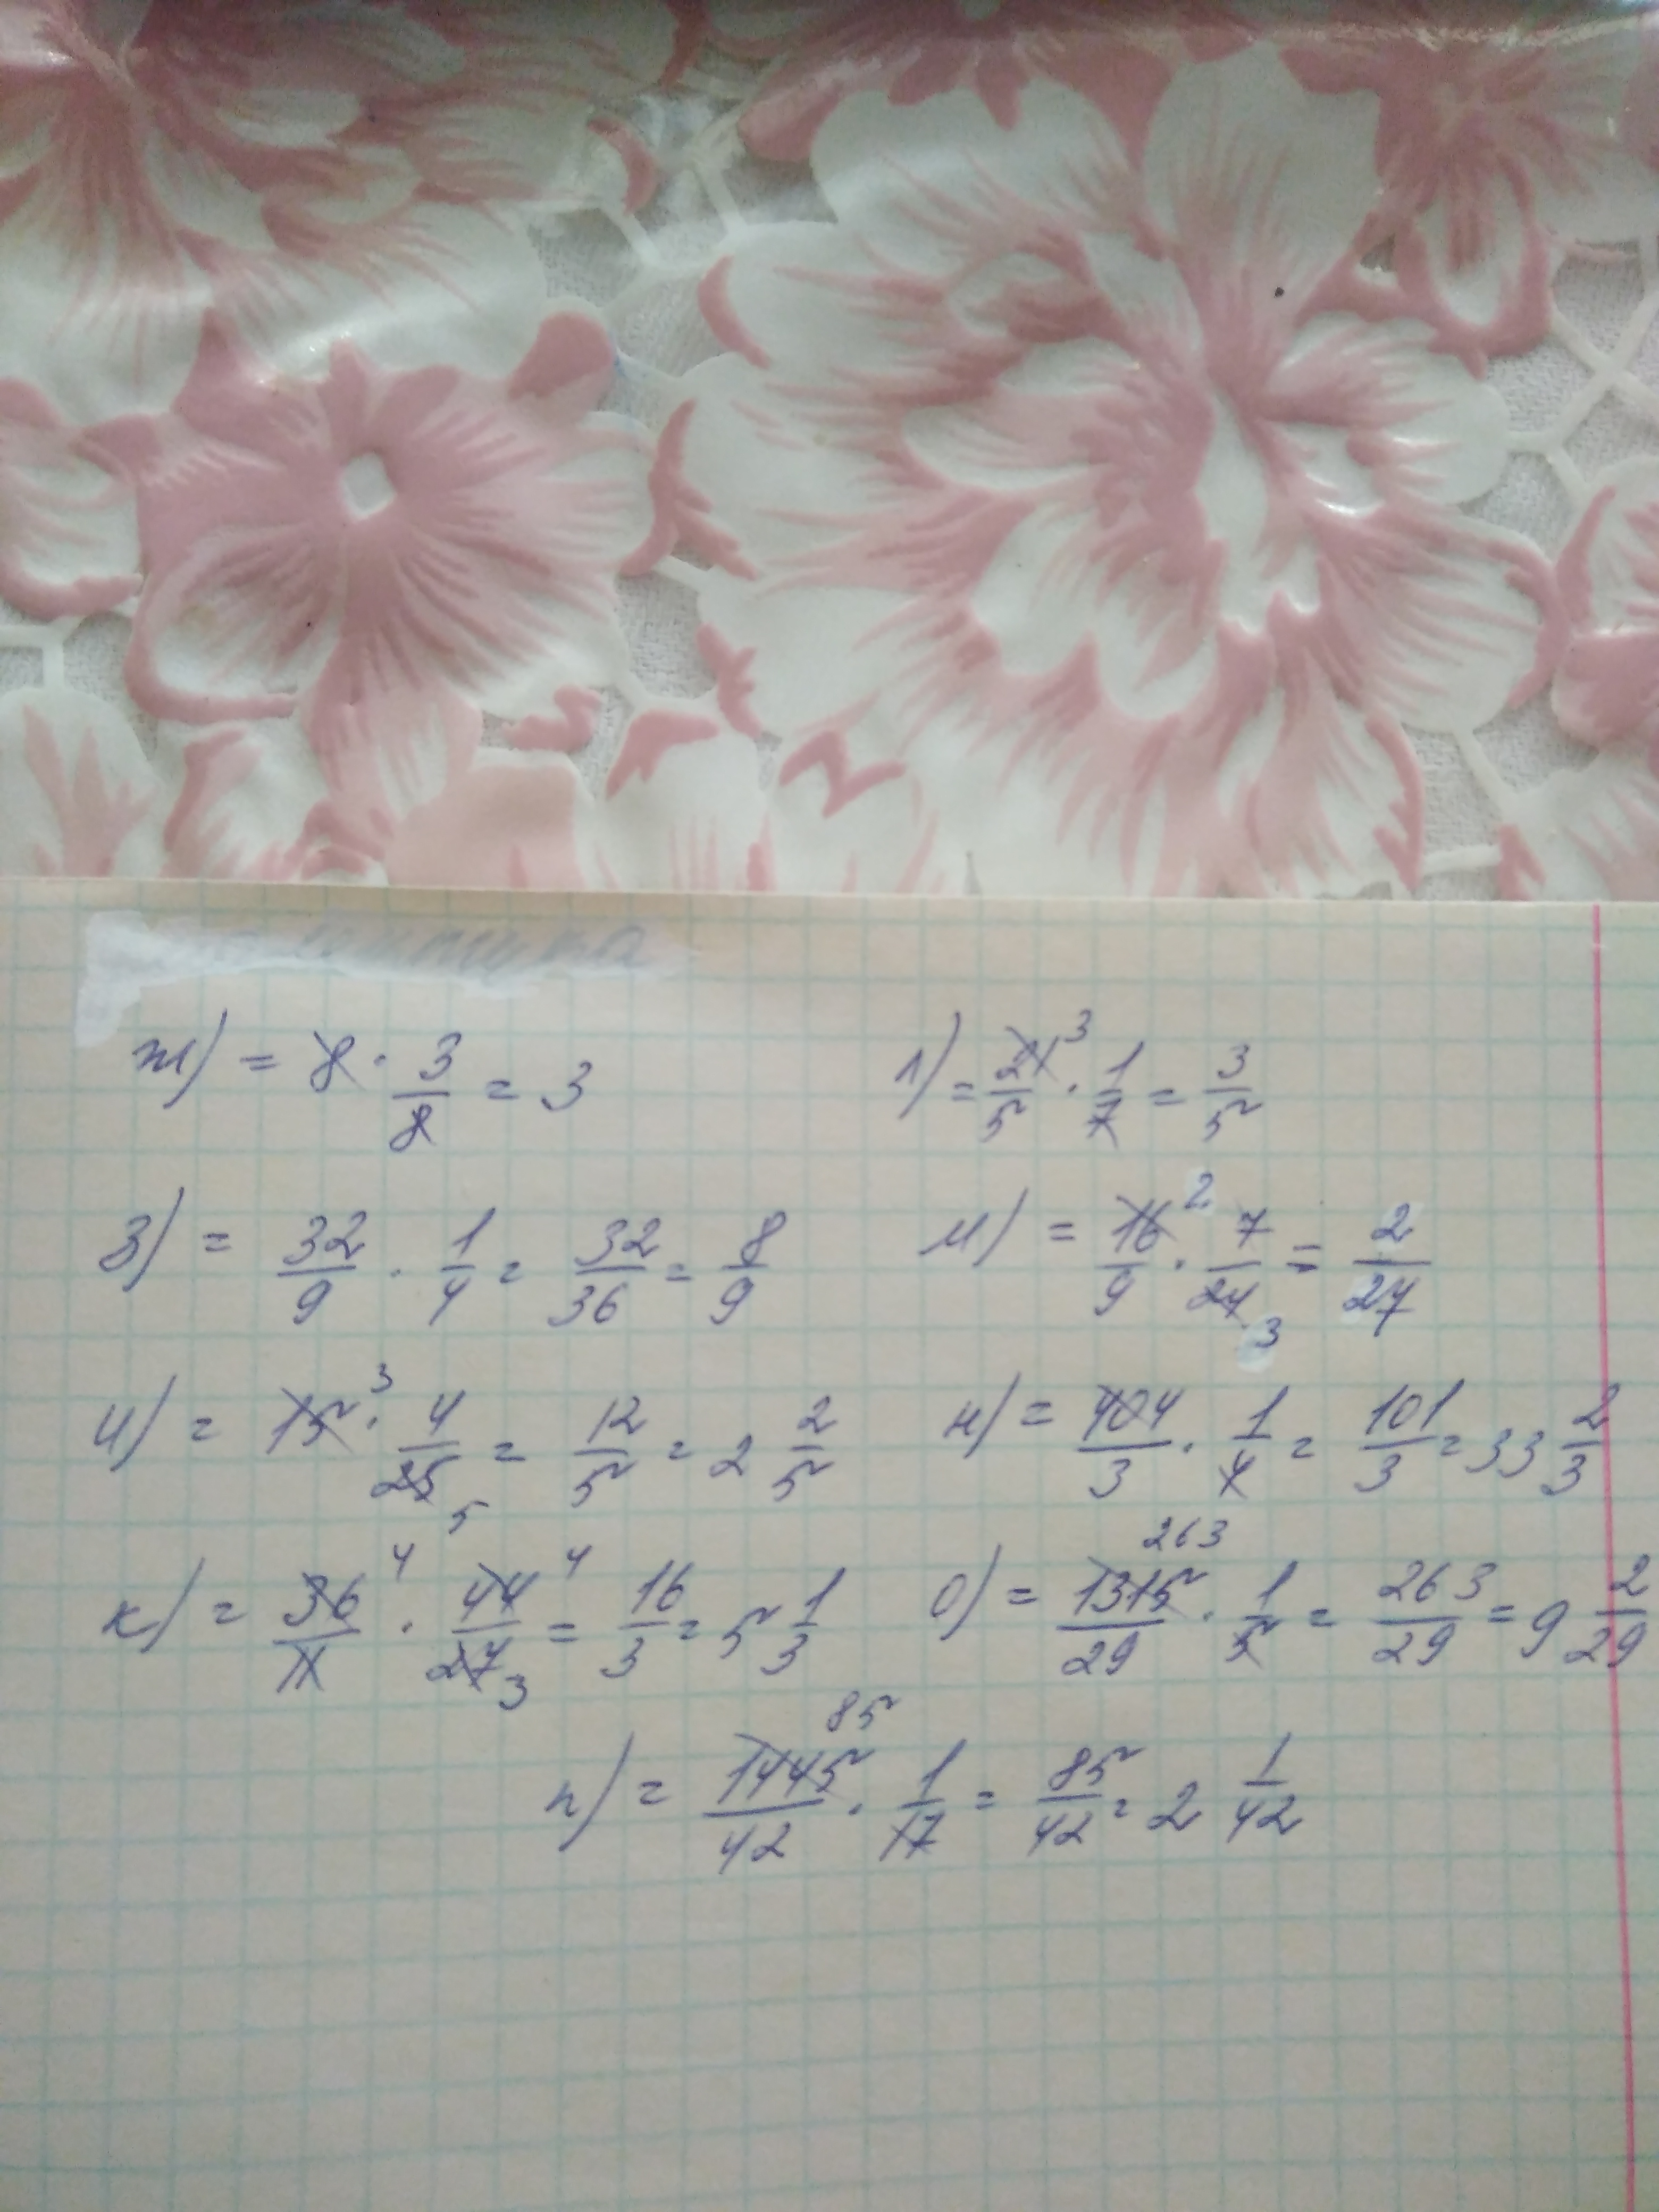 ж) = 8 · 3/8 = 3
л) = 21/5 3 · 1/7 = 3/5
з) = 32/9 · 1/4 = 32/36 = 8/9
м) = 16/9 2 · 7/24 3 = 2/27
и) = 15 3 · 4/25 5 = 12/5 = 2 2/5
н) = 404/3 · 1/4 = 101/3 = 33 2/3
к) = 36/11 4 · 44/27 4 3 = 16/3 = 5 1/3
о) = 1315/29 263 · 1/5 = 263/29 = 9 2/29
п) = 1445/42 85 · 1/17 = 85/42 = 2 1/42